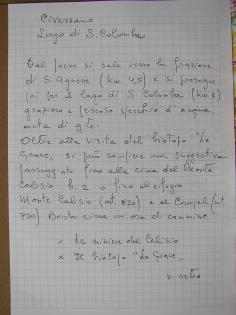 Civezzano
Lago di S. Colomba
Dal paese si sale verso la frazione
di S. Agnese (km 4,5) e si prosegue
poi per il lago di S. Colomba (km 7)
grazioso e pescoso specchio d'acqua
meta di gite.
Oltre alla visita del biotopo "Le
Grave", si può compiere una suggestiva
passeggiata fino alla cima del Monte
Calisio h. 2 o fino al rifugio
Monte Calisio (mt. 820) e al Campel (mt.
720) Basta circa un ora di cammino
x Le miniere del Calisio
x Il biotopo "Le Grave„
v. retro